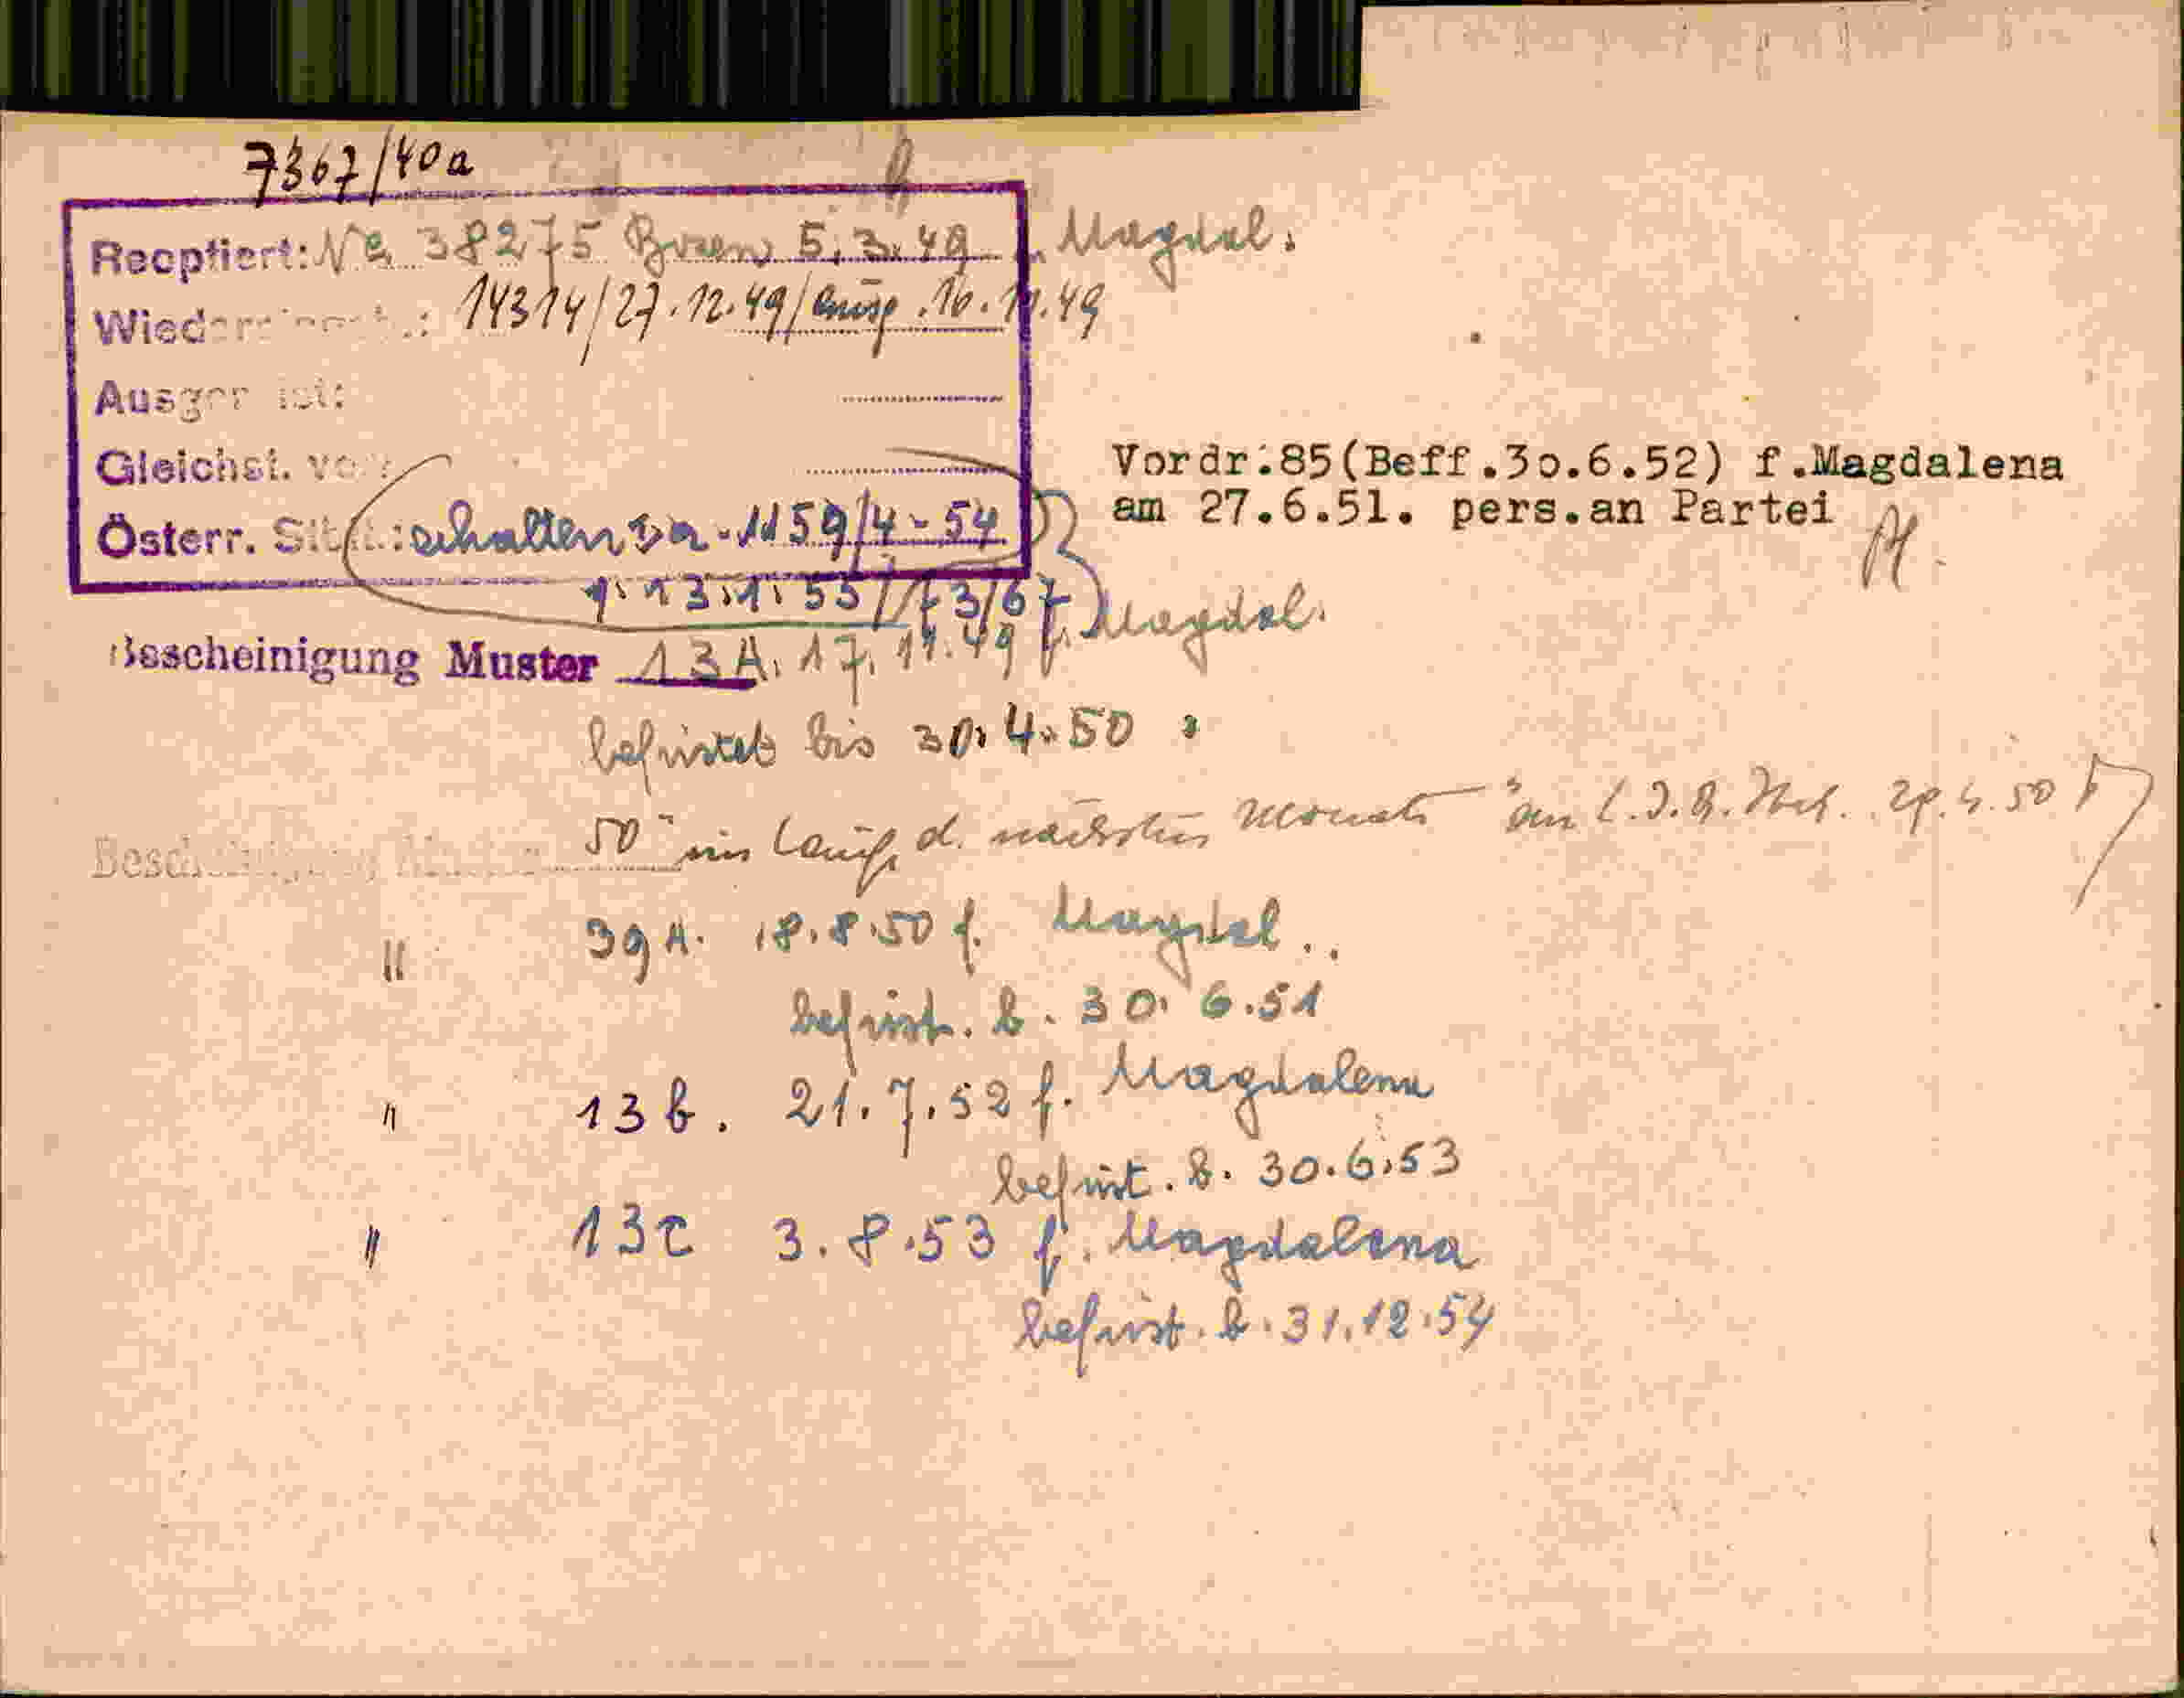 7367/40a
Reoptiert: No. 38275 5.3.49 f. Magdal.
14314/27.12.49/ 16.11.49
Gleichst. v
Österr. erhalten 1159/4-54
v. 13.1.55 / 73/67
Vordr.85(Beff.3o.6.52) f.Magdalena
am 27.6.51. pers.an Partei
Bescheinigung Muster 13A. 17.11.49 f. Magdal.
befristet bis 30.4.50
Bescheinigung 50 "im Laufe d. nächsten Monats" an 4.50
" 39A. 18.8.50 f. Magdal.
befrist. b. 30.6.51
" 13b. 21.7.52 f. Magdalena
befrist. b. 30.6.53
" 13c 3.8.53 f. Magdalena
befrist. b. 31.12.54